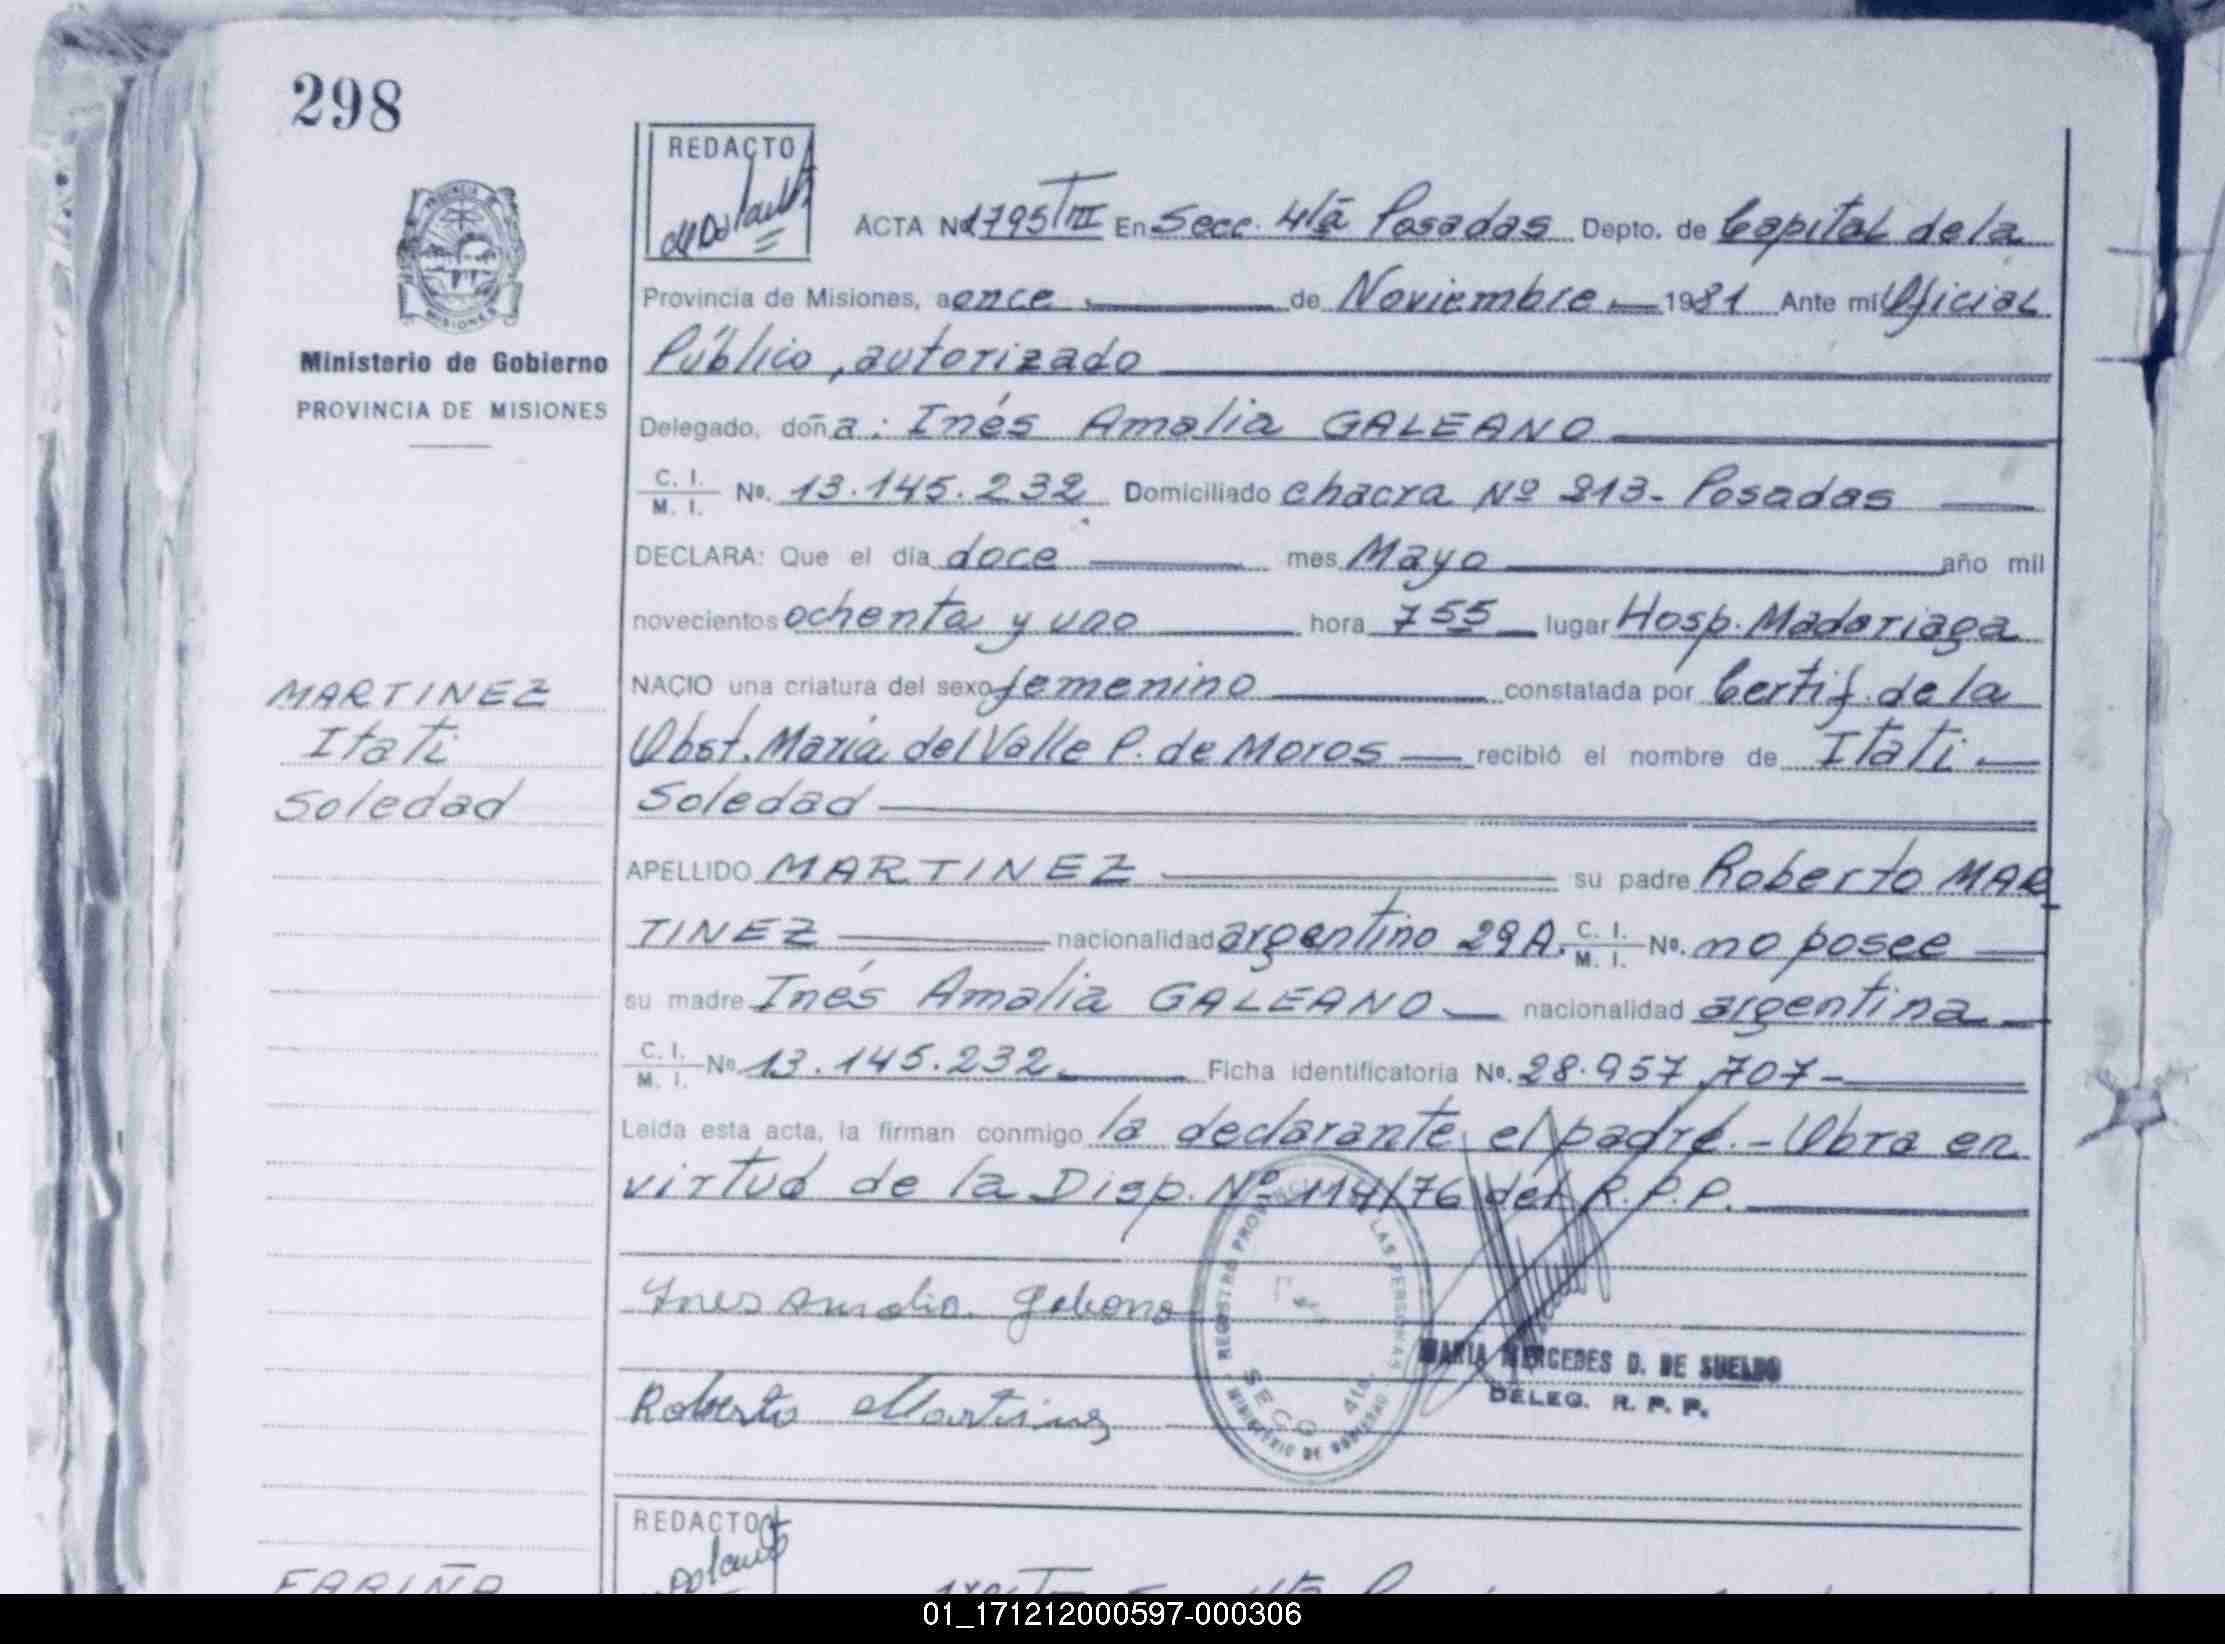 298
REDACTO
PROVINCIA
MISIONES
Ministerio de Gobierno
PROVINCIA DE MISIONES
ACTA Nº 1795 TIII En Secc. 4ta Posadas Depto. de Capital de la
Provincia de Misiones, a once de Noviembre 1981 Ante mi Oficial
Público, autorizado
Delegado, doña: Inés Amalia GALEANO
C. I. / M. I. Nº. 13.145.232 Domiciliado chacra Nº 213- Posadas
DECLARA: Que el día doce mes Mayo año mil
novecientos ochenta y uno hora 7 55 lugar Hosp. Madariaga
NACIO una criatura del sexo femenino constatada por Certif. de la
Obst. María del Valle P. de Moros recibió el nombre de Itati
Soledad
MARTINEZ
Itati
Soledad
APELLIDO MARTINEZ su padre Roberto MAR
TINEZ nacionalidad argentino 29 A. C. I. / M. I. Nº. no posee
su madre Inés Amalia GALEANO nacionalidad argentina
C. I. / M. I. Nº 13.145.232 Ficha identificatoria Nº. 28.957.707-
Leída esta acta, la firman conmigo la declarante, el padre.- Obra en
virtud de la Disp. Nº 114/76 del R.P.P.
Ines Amalia Galeano
Roberto Martinez
REGISTRO PROVINCIAL DE LAS PERSONAS
SECC. 4ta.
MINISTERIO DE GOBIERNO
MARIA MERCEDES D. DE SUELDO
DELEG. R. P. P.
REDACTO
FARIÑA
01_171212000597-000306